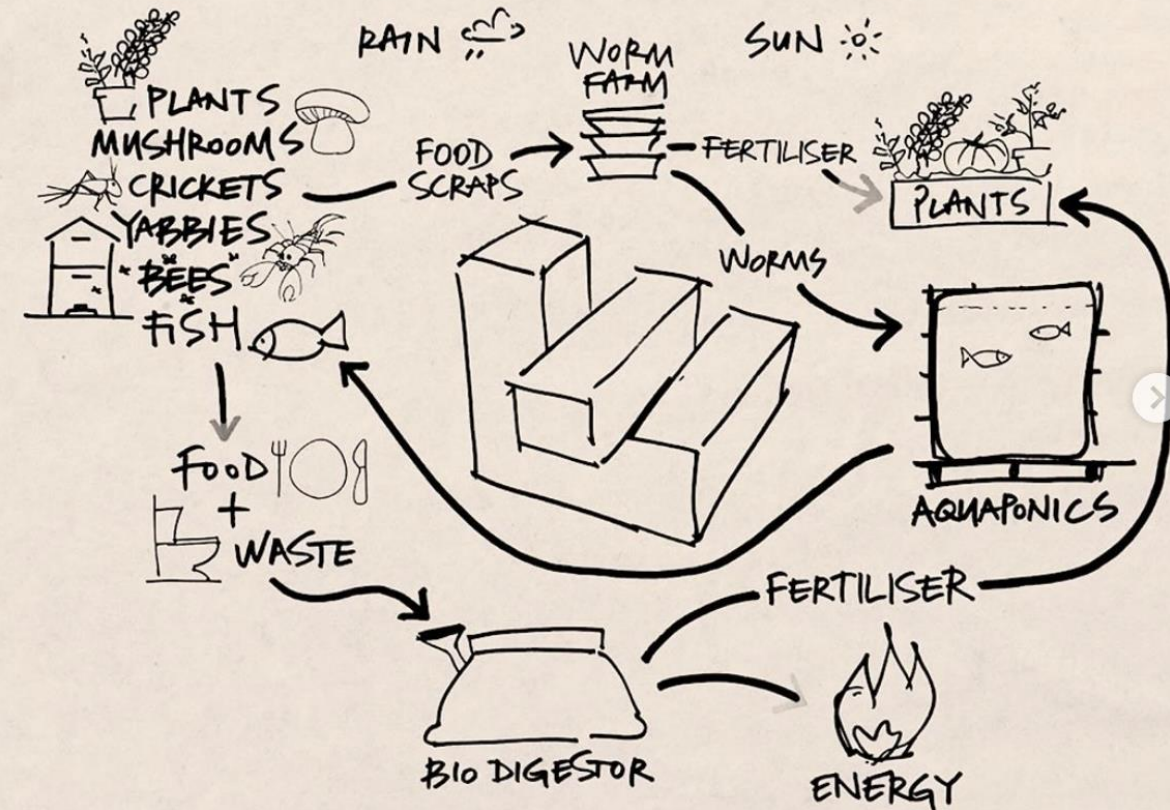 RAIN
SUN
WORM
FARM
PLANTS
MUSHROOMS
CRICKETS
YABBIES
BEES
FISH
FOOD
SCRAPS
FERTILISER
PLANTS
WORMS
AQUAPONICS
FOOD
+
WASTE
FERTILISER
BIO DIGESTOR
ENERGY